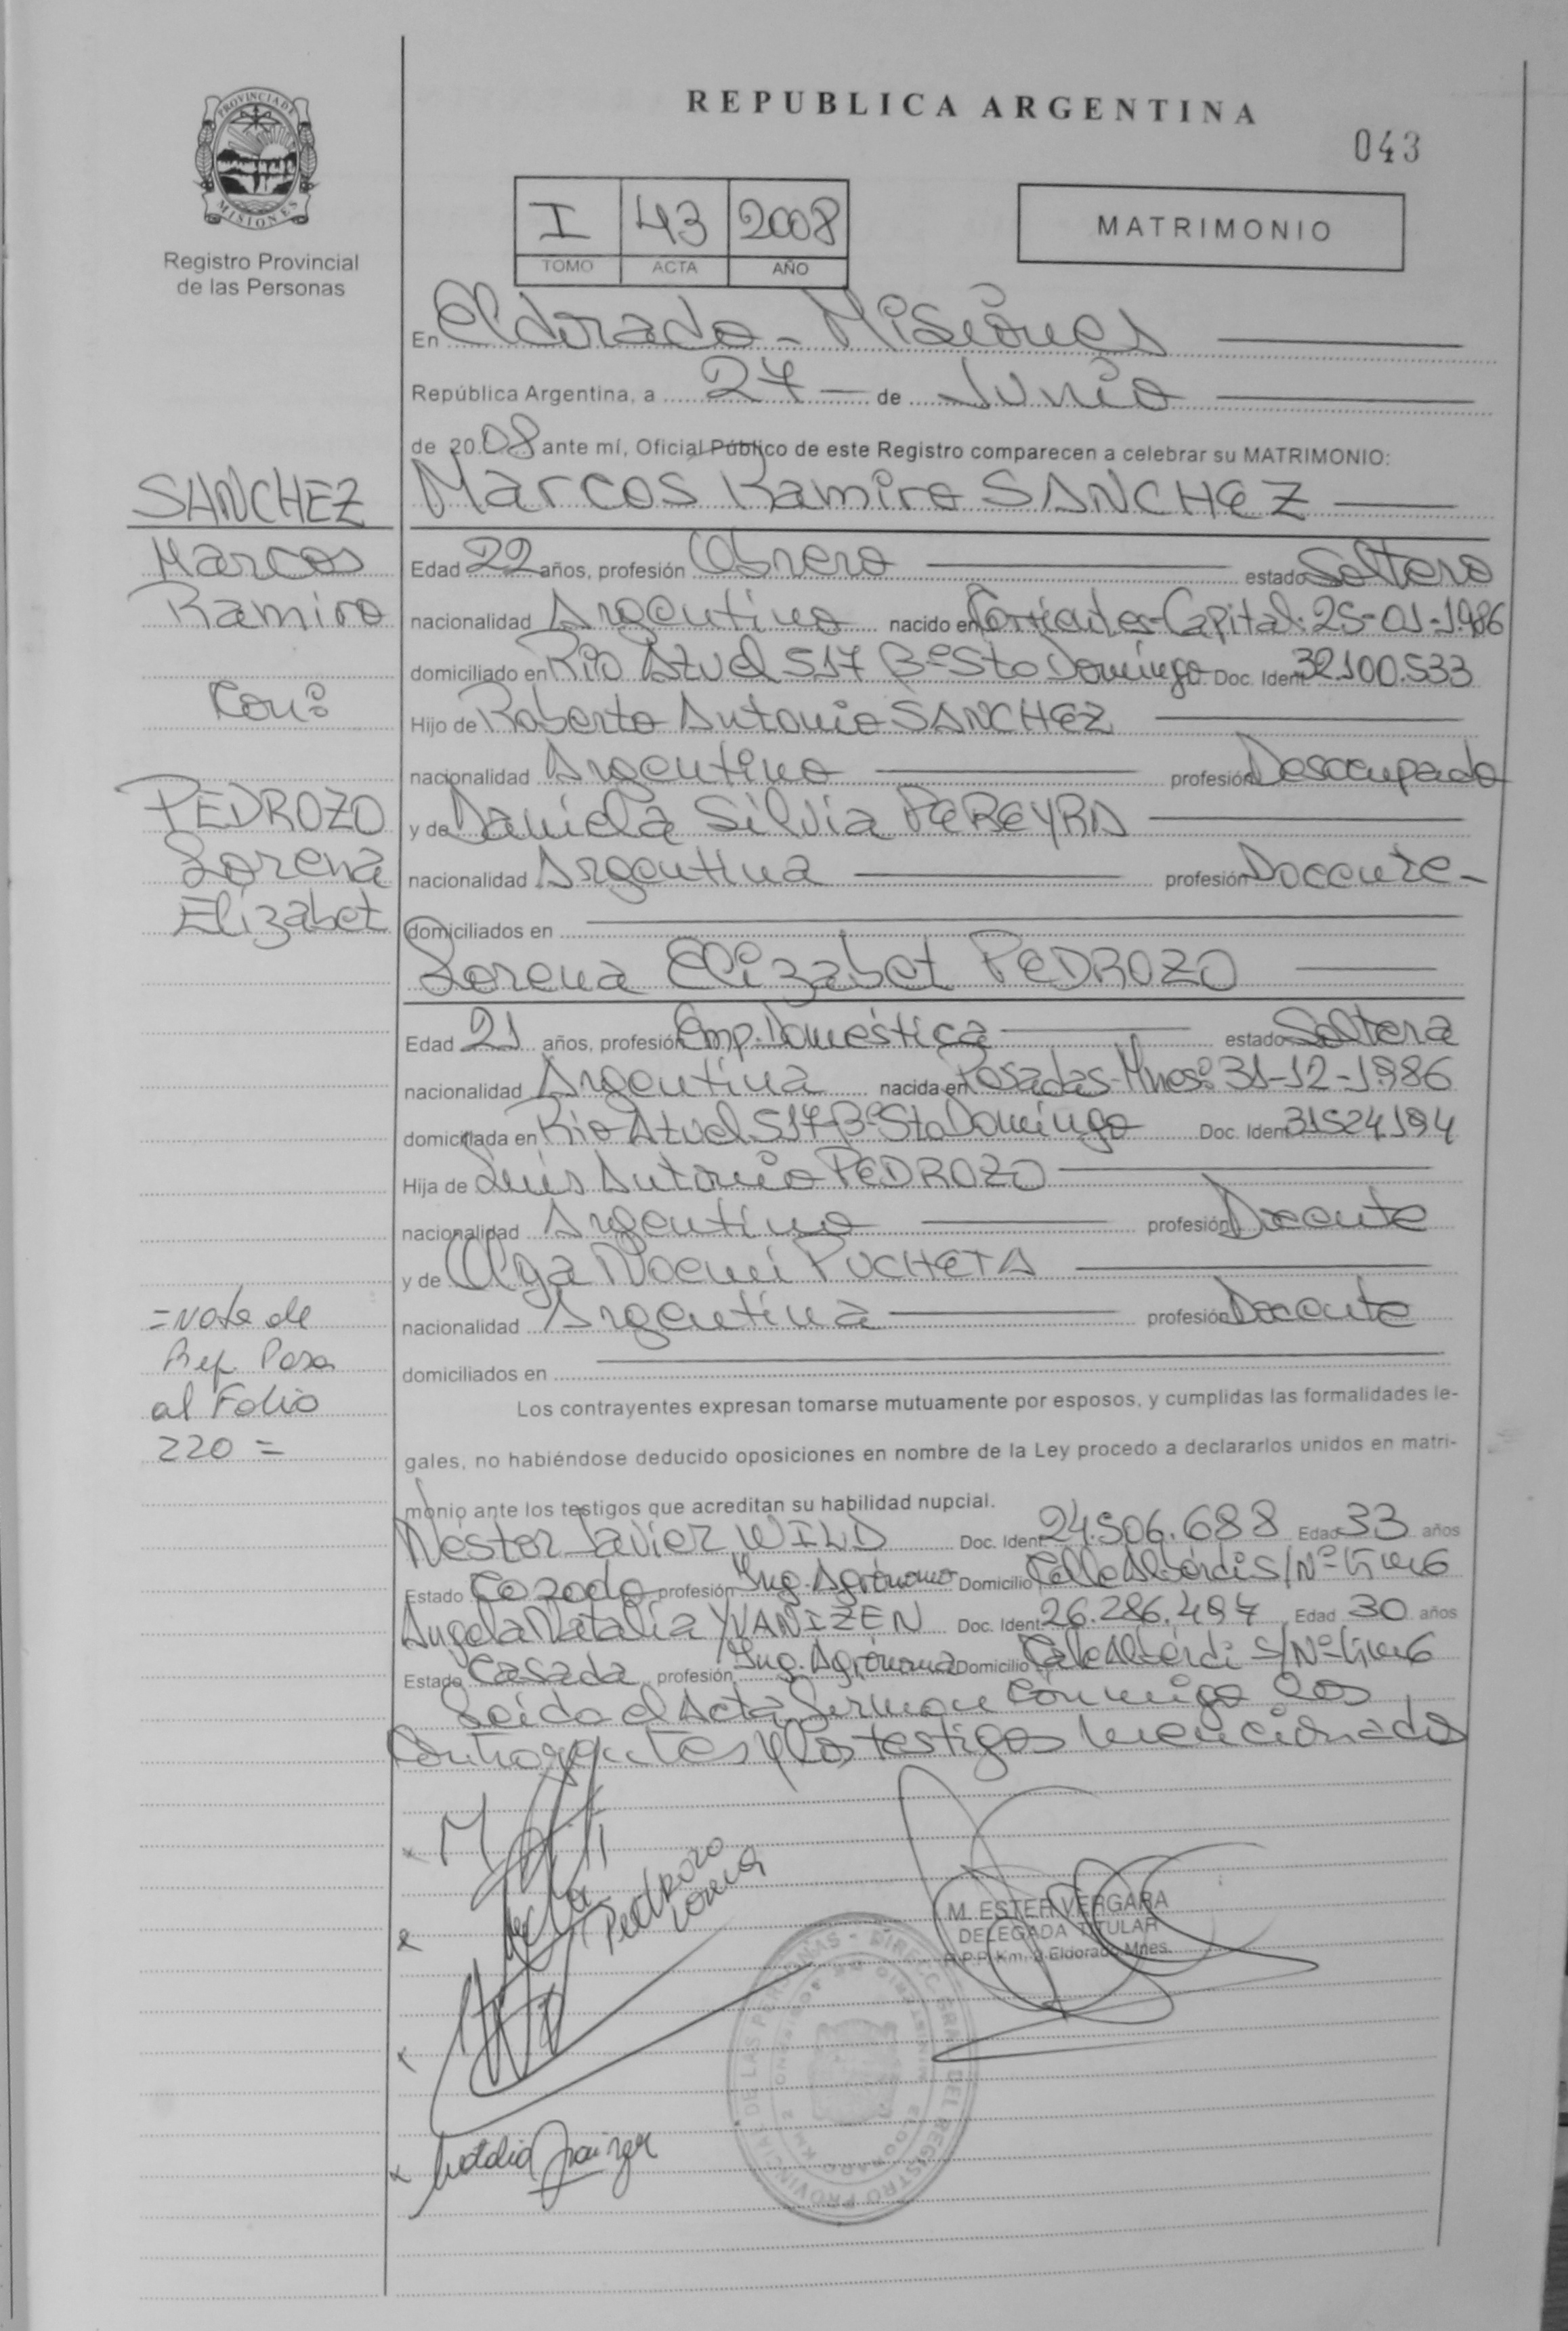 PROVINCIA DE
MISIONES
Registro Provincial
de las Personas
REPUBLICA ARGENTINA
043
I 43 2008
TOMO ACTA AÑO
MATRIMONIO
En Eldorado - Misiones
República Argentina, a 27 de Junio
de 2008 ante mí, Oficial Público de este Registro comparecen a celebrar su MATRIMONIO:
Marcos Ramiro SANCHEZ
Edad 22 años, profesión Obrero estado Soltero
nacionalidad Argentino nacido en Corrientes-Capital: 25-01-1986
domiciliado en Rio Atuel 517 Bº Sto Domingo Doc. Ident. 32.100.533
Hijo de Roberto Antonio SANCHEZ
nacionalidad Argentino profesión Desocupado
y de Daniela Silvia PEREYRA
nacionalidad Argentina profesión Docente-
domiciliados en
Lorena Elizabet PEDROZO
Edad 21 años, profesión Emp. Doméstica estado Soltera
nacionalidad Argentina nacida en Posadas-Mnes: 31-12-1986
domiciliada en Rio Atuel 517-Bº Sto Domingo Doc. Ident. 31524194
Hija de Luis Antonio PEDROZO
nacionalidad Argentino profesión Docente
y de Olga Noemi PUCHETA
nacionalidad Argentina profesión Docente
domiciliados en
Los contrayentes expresan tomarse mutuamente por esposos, y cumplidas las formalidades le-
gales, no habiéndose deducido oposiciones en nombre de la Ley procedo a declararlos unidos en matri-
monio ante los testigos que acreditan su habilidad nupcial.
Nestor Javier WILD Doc. Ident. 24.506.688 Edad 33 años
Estado Casado profesión Ing. Agrónomo Domicilio Calle Alberdi S/Nº
Angela Natalia YVANIZEN Doc. Ident. 26.286.497 Edad 30 años
Estado Casada profesión Ing. Agrónoma Domicilio Calle Alberdi S/Nº
Leída el Acta firman conmigo los
Contrayentes y los testigos mencionados
Pedrozo
Lorena
M. ESTER VERGARA
DELEGADA TITULAR
R.P.P. Km. 2 Eldorado Mnes.
Natalia
SANCHEZ
Marcos
Ramiro
Con:
PEDROZO
Lorena
Elizabet
=Nota de
Ref. Pasa
al Folio
220 =